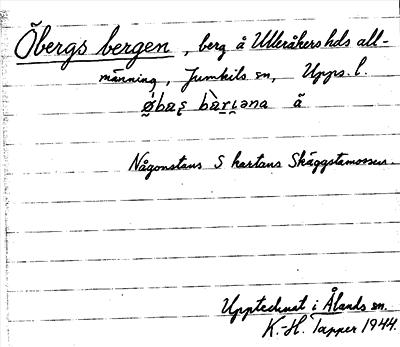 Öbergs bergen, berg å Ulleråkers hds all-
männing, Jumkils sn, Upps. l.
bärɩəna å
Någonstans S kartans Skäggstamossen.
Upptecknat i Ålands sn.
K.-H. Tapper 1944.